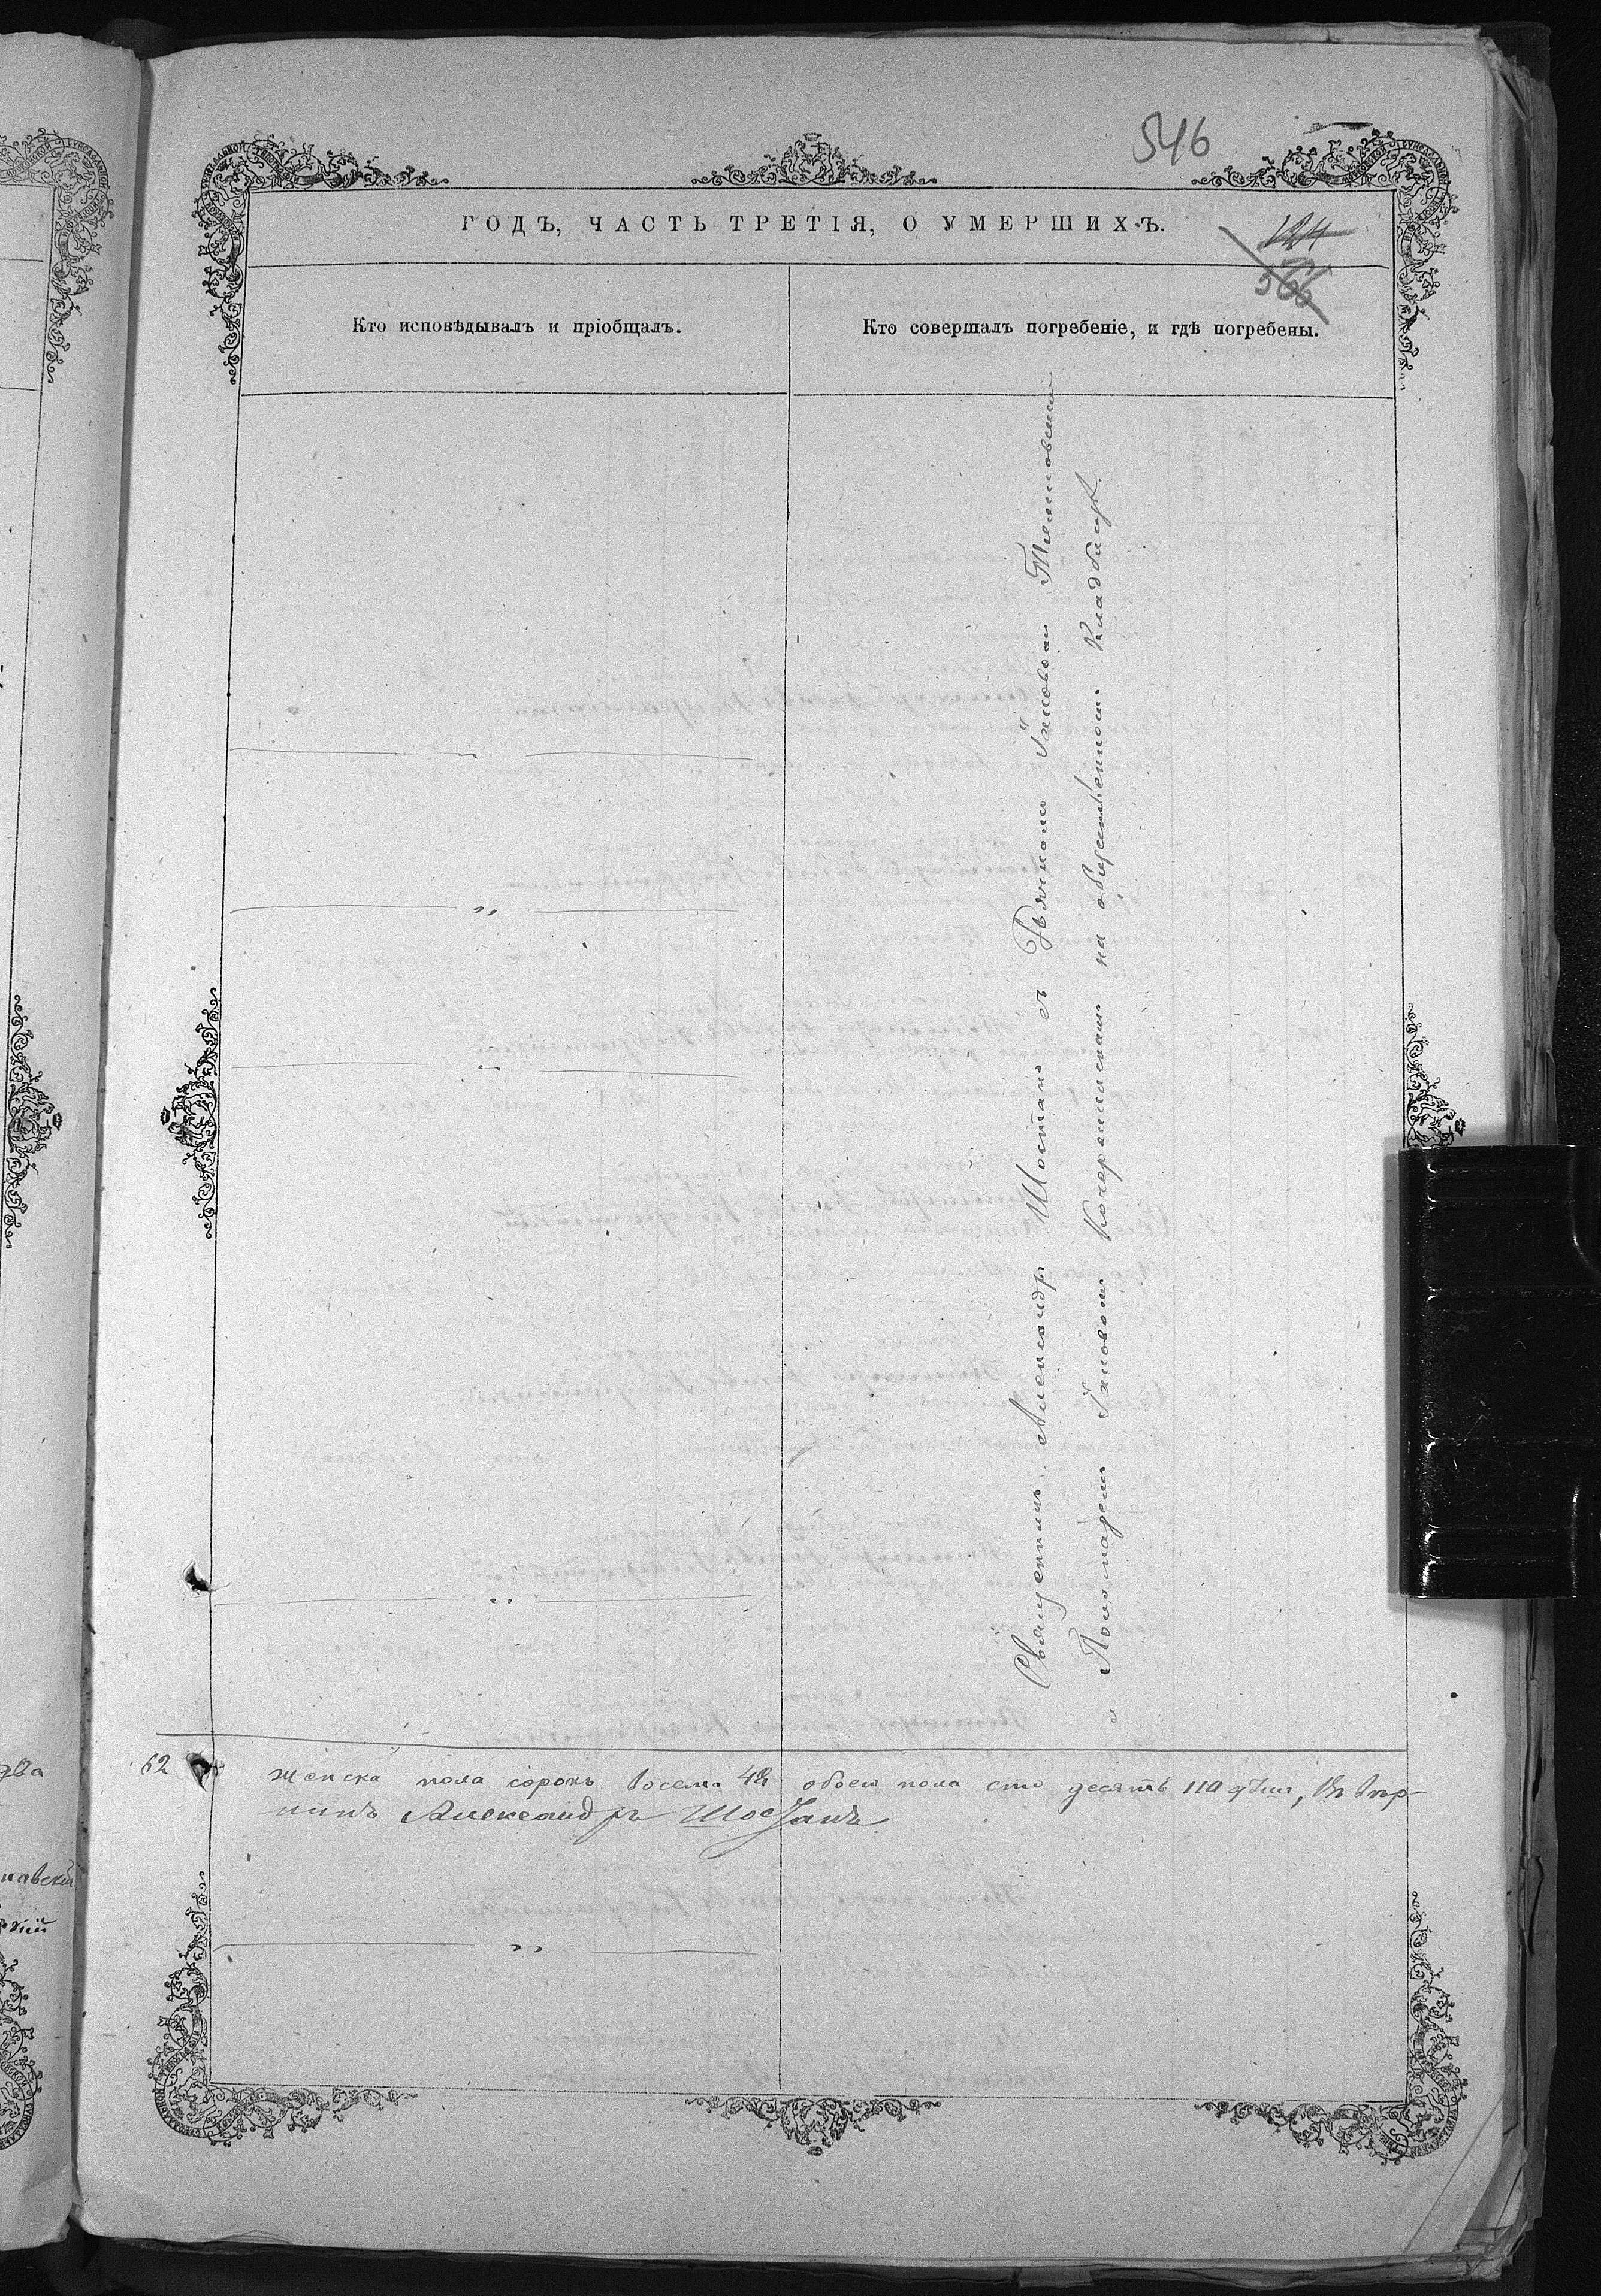 546
ГОДЪ, ЧАСТЬ ТРЕТІЯ, О УМЕРШИХЪ.
124
566
Кто исповѣдывалъ и пріобщалъ.
Кто совершалъ погребеніе, и гдѣ погребены.
Священникъ Александръ Шостакъ съ Дьякономъ Іаковомъ
и Пономаремъ Іаковомъ на общественномъ Кладбищѣ
62 женска пола сорокъ восемь 48 обоего пола сто десять 110
Александръ Шостакъ